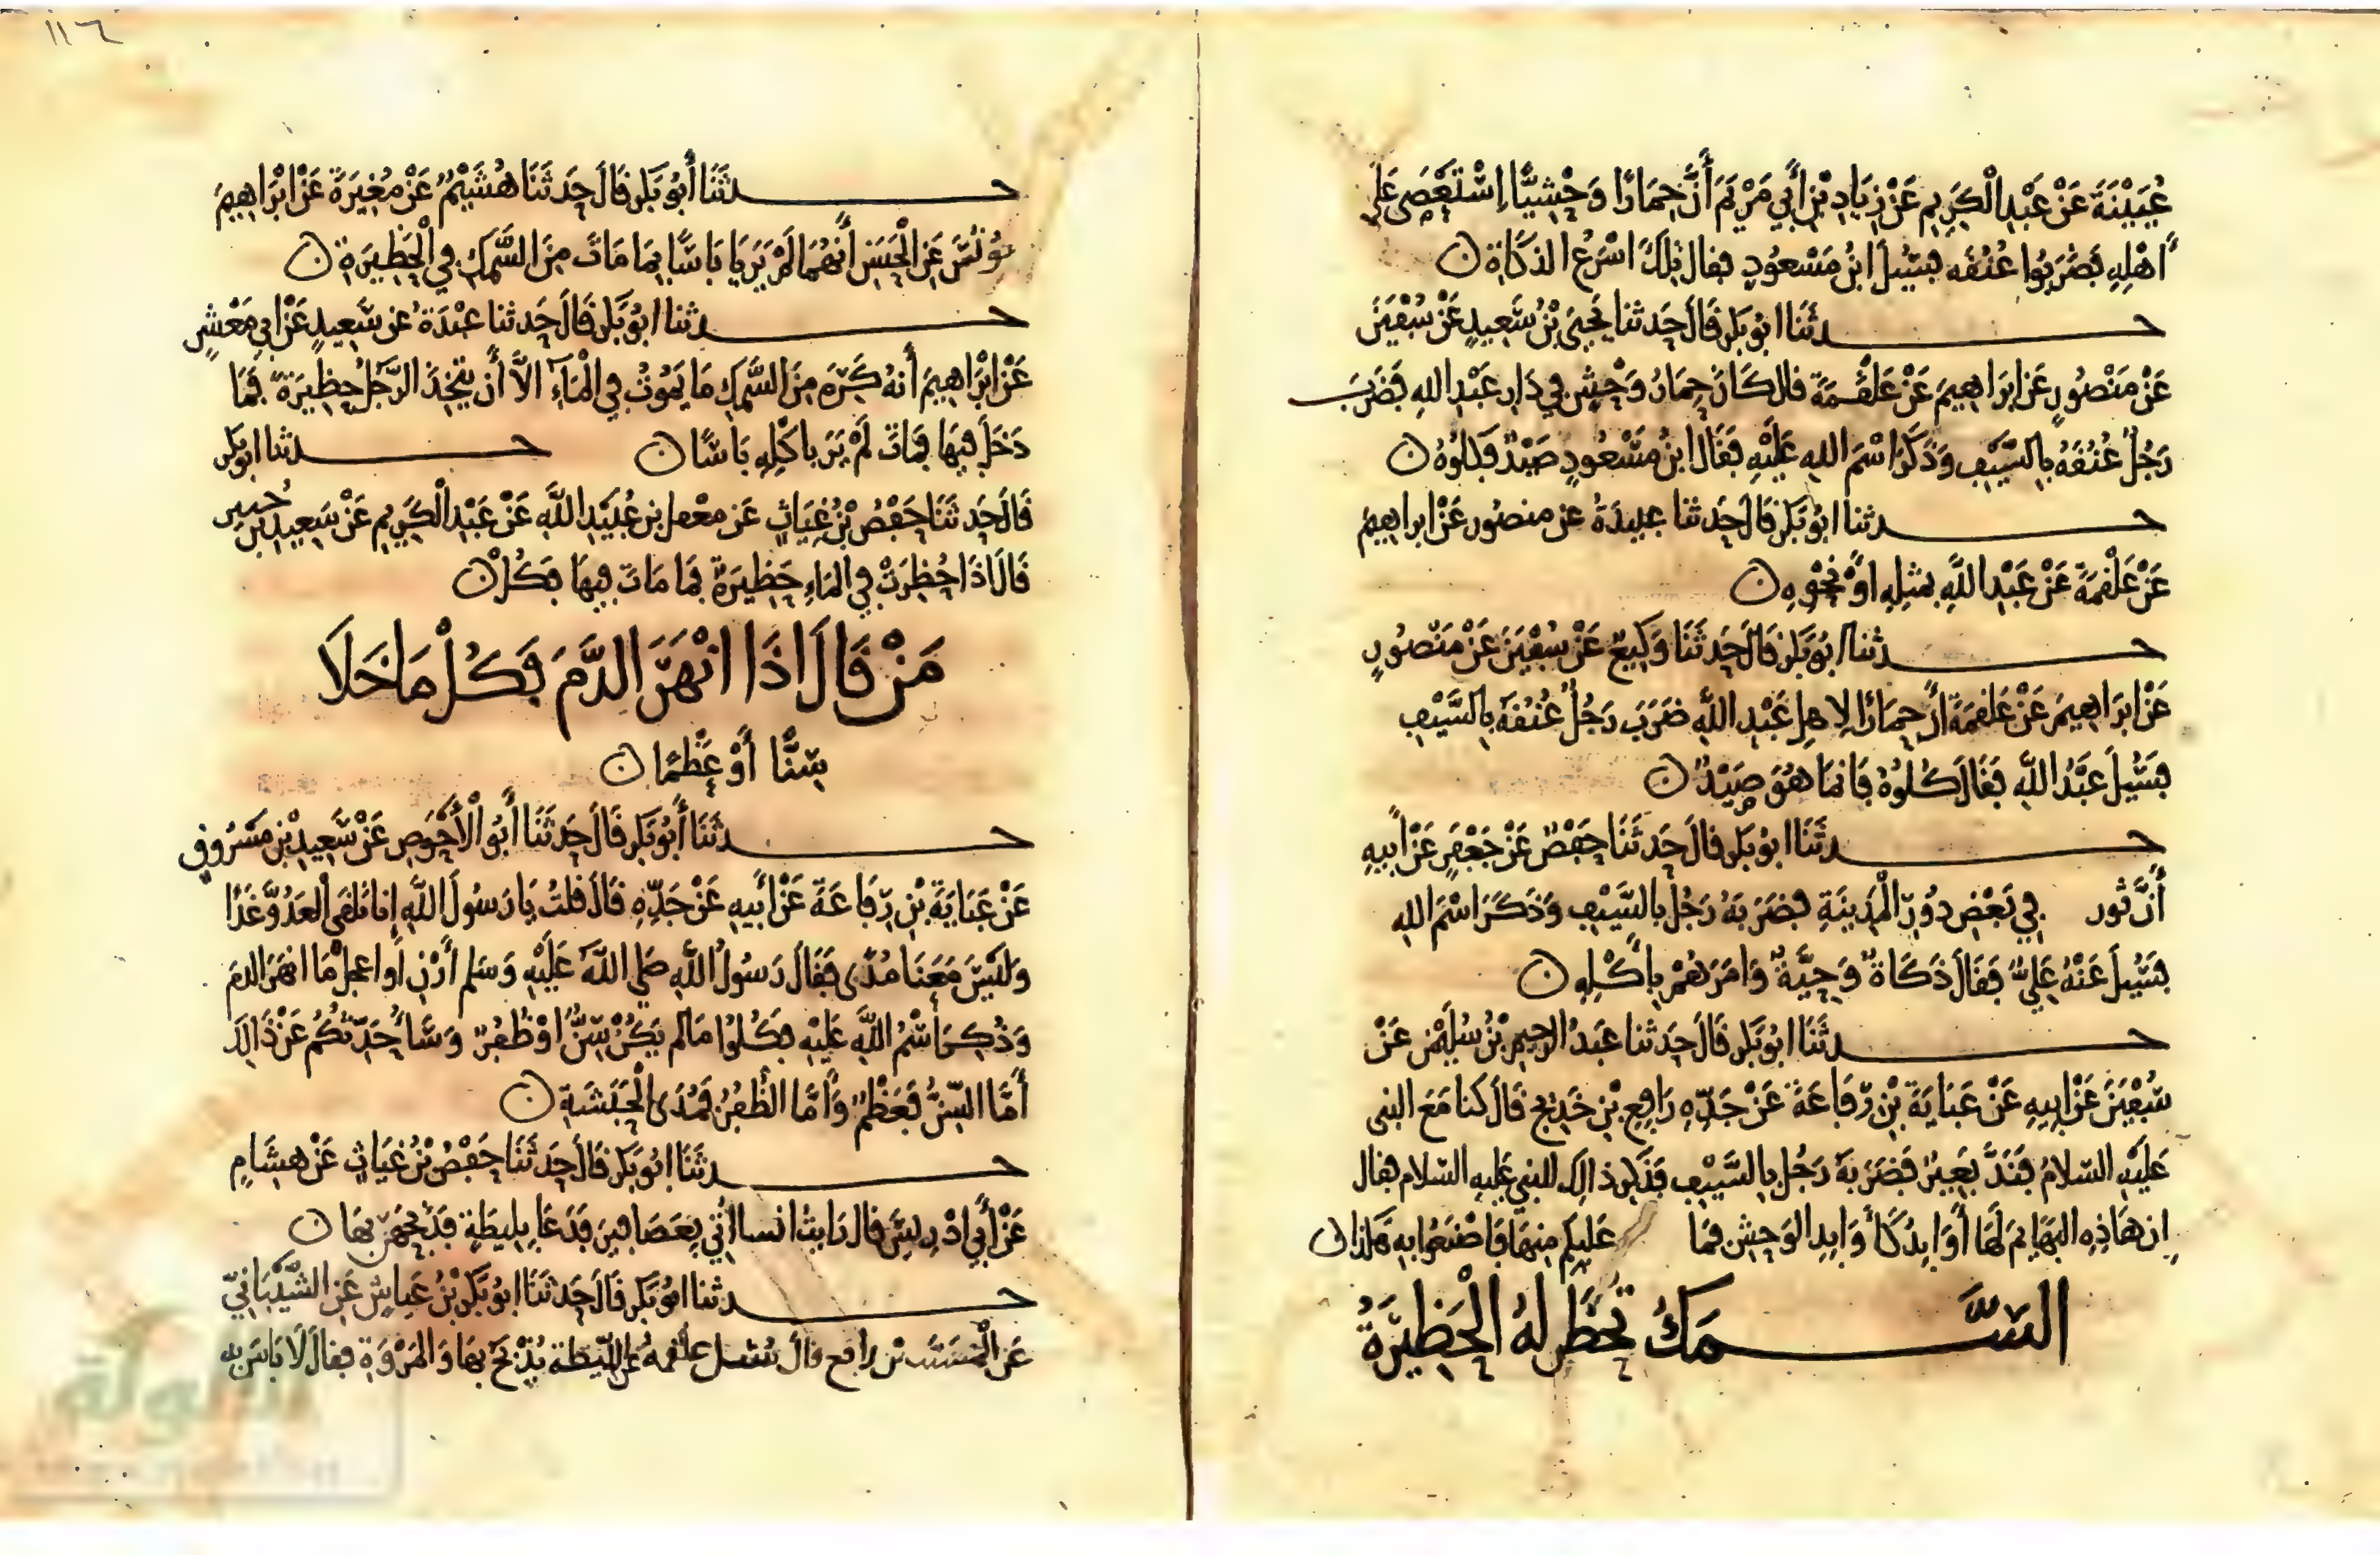 عُيَيْنَةَ عَنْ عَبْدِ الْكَرِيمِ عَنْ زِيَادِ بْنِ أَبِي مَرْيَمَ أَنَّ حِمَارًا وَحْشِيًّا اِسْتَعْصَى عَلَى
أَهْلِهِ فَضَرَبُوا عُنُقَه فَسُئِلَ ابنُ مَسْعُودٍ فقال تِلْكَ اسْرَعُ الذكَاةِ ن
حدثَنَا ابُو بَكر قَالَ حَدثنا يَحْيَى بْنُ سَعِيدٍ عَنْ سُفْيَنَ
عَنْ مَنْصُورٍ عَن ابرَاهِيمَ عَنْ عَلْقَمَةَ قال كَانَ حِمَارُ وَحْشٍ فِي دَارِ عَبْدِ اللهِ فَضَرَبَ
رَجُلٌ عُنُقَهُ بِالسَّيْفِ وَذَكَرَ اسْمَ اللهِ عَلَيْهِ فَقَالَ ابنُ مَسْعُودٍ صَيْدٌ فَكُلُوهُ ن
حدثنا ابُو بَكر قَالَ حَدثنا عبيدَةُ عن منصُور عَنْ ابراهِيمَ
عَنْ عَلْقَمَةَ عَنْ عَبْدِ اللَّهِ بمثلِهِ اوْ نَحْوِهِ ن
حدثنا ابُو بَكر قَالَ حَدثَنَا وَكِيعٌ عَنْ سُفْيَنَ عَنْ مَنْصُورٍ
عَنْ ابرَاهِيمَ عَنْ عَلقمَةَ أنَّ حِمَارًا لِاهلِ عَبْدِ اللَّهِ ضَرَبَ رَجُلٌ عُنُقَهُ بِالسَّيْفِ
فَسُئِلَ عَبْدُ اللَّهِ فَقَالَ كُلُوهُ فَانمَا هُوَ صَيْدٌ ن
حدثَنَا ابُو بَكر قالَ حَدثَنَا حَفْصٌ عَنْ جَعْفَرٍ عَنْ أَبِيهِ
أَنَّ ثور فِي بَعْضِ دُورِ الْمَدِينَةِ فضَرَبَهُ رَجُلٌ بِالسَّيْفِ وَذَكَرَ اسْمَ اللهِ
فَسُئِلَ عَنْهُ عَلِيٌّ فَقَالَ ذَكَاةٌ وَحِيَّةٌ وَامَرَهُمْ بِأَكْلِهِ ن
حدثَنَا ابُو بَكر قَالَ حَدثنا عَبدُ الرحِيمِ بْنُ سُلَيْمَنَ عَنْ
سُفْيَنَ عَنْ ابِيهِ عَنْ عَبَايَةَ بْنِ رِفَاعَةَ عَنْ جَدِّهِ رَافِعِ بْنِ خَدِيج قَالَ كنا مَعَ النبى
عَلَيْهِ السلامُ فَنَدَّ بَعِيرٌ فَضَرَبَهُ رَجُلٌ بِالسَّيْفِ فَذُكِرَ ذالِكَ للنبي عَلَيهِ السلام فقال
اِن هَاذِهِ البهَايِمَ لَهَا أَوَابِدُ كَأَوَابِدِ الوَحْشِ فمَا عَلَيكم مِنهَا فَاصْنَعُوا بِهِ هَاكَذا ن
السَّمَكُ تُحْظَر لهُ الْحَظِيرَةُ
حدثَنَا أَبُو بَكر قَالَ حَدثَنَا هُشَيْمٌ عَنْ مُغِيرَةَ عَنْ ابْرَاهِيمَ
يُونُسَ عَنِ الْحَسَنِ أَنهُمَا لَمْ يَرَيَا بَاسًا بِمَا مَاتَ مِنَ السَّمَكِ فِي الْحَظِيرَةِ ن
حدثنا ابُو بَكر قَالَ حَدثنا عَبْدَةُ عن سَعِيدٍ عَنْ ابِي مَعْشَرٍ
عَنْ ابْرَاهِيمَ أَنهُ كَرِهَ مِنَ السَّمَكِ مَا يَمُوتُ فِي الْمَآءِ الاَّ أَن يتَّخِذَ الرَّجُلُ حَظِيرَةً فَمَا
دَخَلَ فيهَا فمَاتَ لَمْ يَرَ باكْلِهِ بَاسًا ن حدثنا ابو بَكر
قَالَ حَدثَنَا حَفْصُ بْنُ غِيَاثٍ عَن معقل بن عُبَيْدِ اللَّهِ عَنْ عَبْدِ الْكَرِيمِ عَنْ سَعِيدِ بنِ جُبير
قَالَ اذَا حُظِرَتْ فِي المَاءِ حَظِيرَةٌ فمَا مَاتَ فِيهَا فكُلْ ن
مَنْ قَالَ اذَا انْهَرَ الدَّمَ فَكُلْ مَا خَلَا
سِنًّا أَوْ عَظْمًا ن
حدثَنَا أَبُو بَكر قَالَ حَدثَنَا أَبُو الْأَحْوَصِ عَنْ سَعِيدِ بْنِ مَسْرُوقٍ
عَنْ عَبَايَةَ بْنِ رِفَاعَةَ عَنْ أَبِيهِ عَنْ جَدِّهِ قَالَ قلتُ يَا رَسُولَ اللَّهِ إِنا نَلقَى الْعَدُوَّ غَدًا
وَلَيْسَ مَعَنَا مُدًى فَقَالَ رَسُولُ اللَّهِ صَلى اللَّهُ عَلَيْهِ وَسَلم أَرْنِ أَو اعجلْ مَا انهَرَ الدمَ
وَذُكِرَ اسْمُ اللَّهِ عَلَيْهِ فكُلُوا مَا لم يَكُنْ سِنٌّ اوْ ظُفُرٌ وَسَأُحَدِّثُكُمْ عَنْ ذَالِكَ
أَمَّا السِّنُّ فَعَظْمٌ وَأَمَّا الظُّفُرُ فَمُدَى الْحَبَشَةِ ن
حدثَنَا ابُو بَكر قَالَ حَدثَنَا حَفْصُ بْنُ غِيَاثٍ عَنْ هِشَامٍ
عَنْ أَبِي ادْرِيسَ قال رَايتُ انسا اُتِيَ بِعَصَافِيرَ فَدَعَا بِلِيطَةٍ فَذَبَحَهُنَّ بِهَا ن
حدثنا ابُو بَكر قَالَ حَدثَنَا ابُو بَكرِ بْنُ عَيَاشٍ عَنِ الشَّيْبَانِيِّ
عَنِ الْمُسَيَّب بْنِ رافِع قَالَ سُئِل علقمةُ عَنِ اللِّيطَة يُذْبَحُ بِهَا وَالمَرْوَةِ فقالَ لَا بَاسَ به